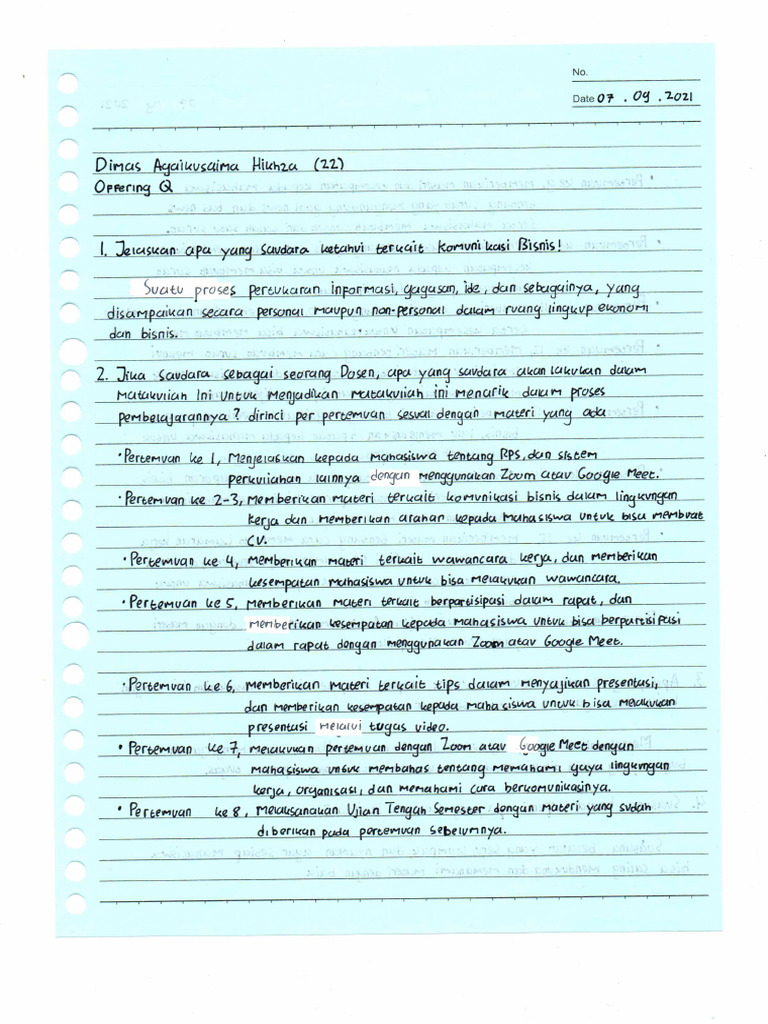 No.
Date 07 . 09 . 2021
Dimas Agaikusaima Hikhza (22)
Offering Q
1. Jelaskan apa yang saudara ketahui terkait Komunikasi Bisnis!
Suatu proses pertukaran informasi, gagasan, ide, dan sebagainya, yang
disampaikan secara personal maupun non-personal dalam ruang lingkup ekonomi
dan bisnis.
2. Jika saudara sebagai seorang Dosen, apa yang saudara akan lakukan dalam
Matakuliah ini untuk menjadikan matakuliah ini menarik dalam proses
pembelajarannya? dirinci per pertemuan sesuai dengan materi yang ada
• Pertemuan ke 1, Menjelaskan kepada mahasiswa tentang RPS, dan sistem
perkuliahan lainnya dengan menggunakan Zoom atau Google Meet.
• Pertemuan ke 2-3, Memberikan materi terkait komunikasi bisnis dalam lingkungan
kerja dan memberikan arahan kepada mahasiswa untuk bisa membuat
CV.
• Pertemuan ke 4, memberikan materi terkait wawancara kerja, dan memberikan
kesempatan mahasiswa untuk bisa melakukan wawancara.
• Pertemuan ke 5, memberikan materi terkait berpartisipasi dalam rapat, dan
memberikan kesempatan kepada mahasiswa untuk bisa berpartisipasi
dalam rapat dengan menggunakan Zoom atau Google Meet.
• Pertemuan ke 6, memberikan materi terkait tips dalam menyajikan presentasi,
dan memberikan kesempatan kepada mahasiswa untuk bisa melakukan
presentasi melalui tugas video.
• Pertemuan ke 7, melakukan pertemuan dengan Zoom atau Google Meet dengan
mahasiswa untuk membahas tentang memahami gaya lingkungan
kerja, organisasi, dan memahami cara berkomunikasinya.
• Pertemuan ke 8, Melaksanakan Ujian Tengah Semester dengan materi yang sudah
diberikan pada pertemuan sebelumnya.